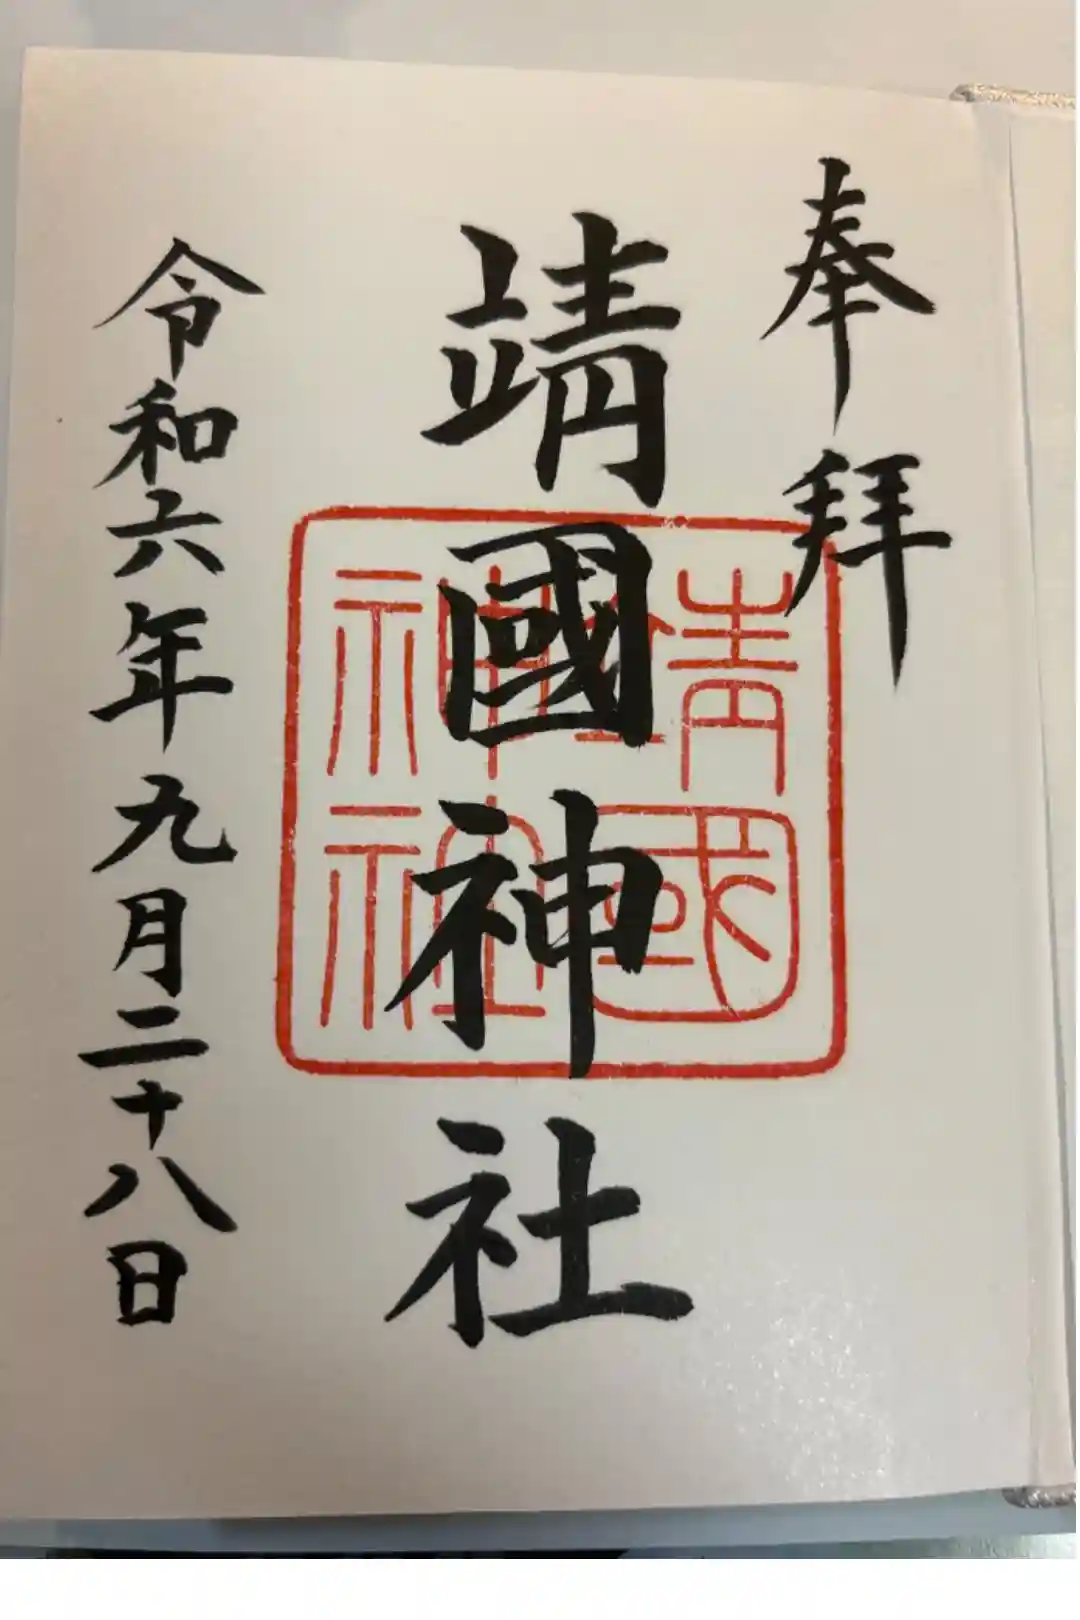 奉拜
靖國神社
靖國
神社
令和六年九月二十八日